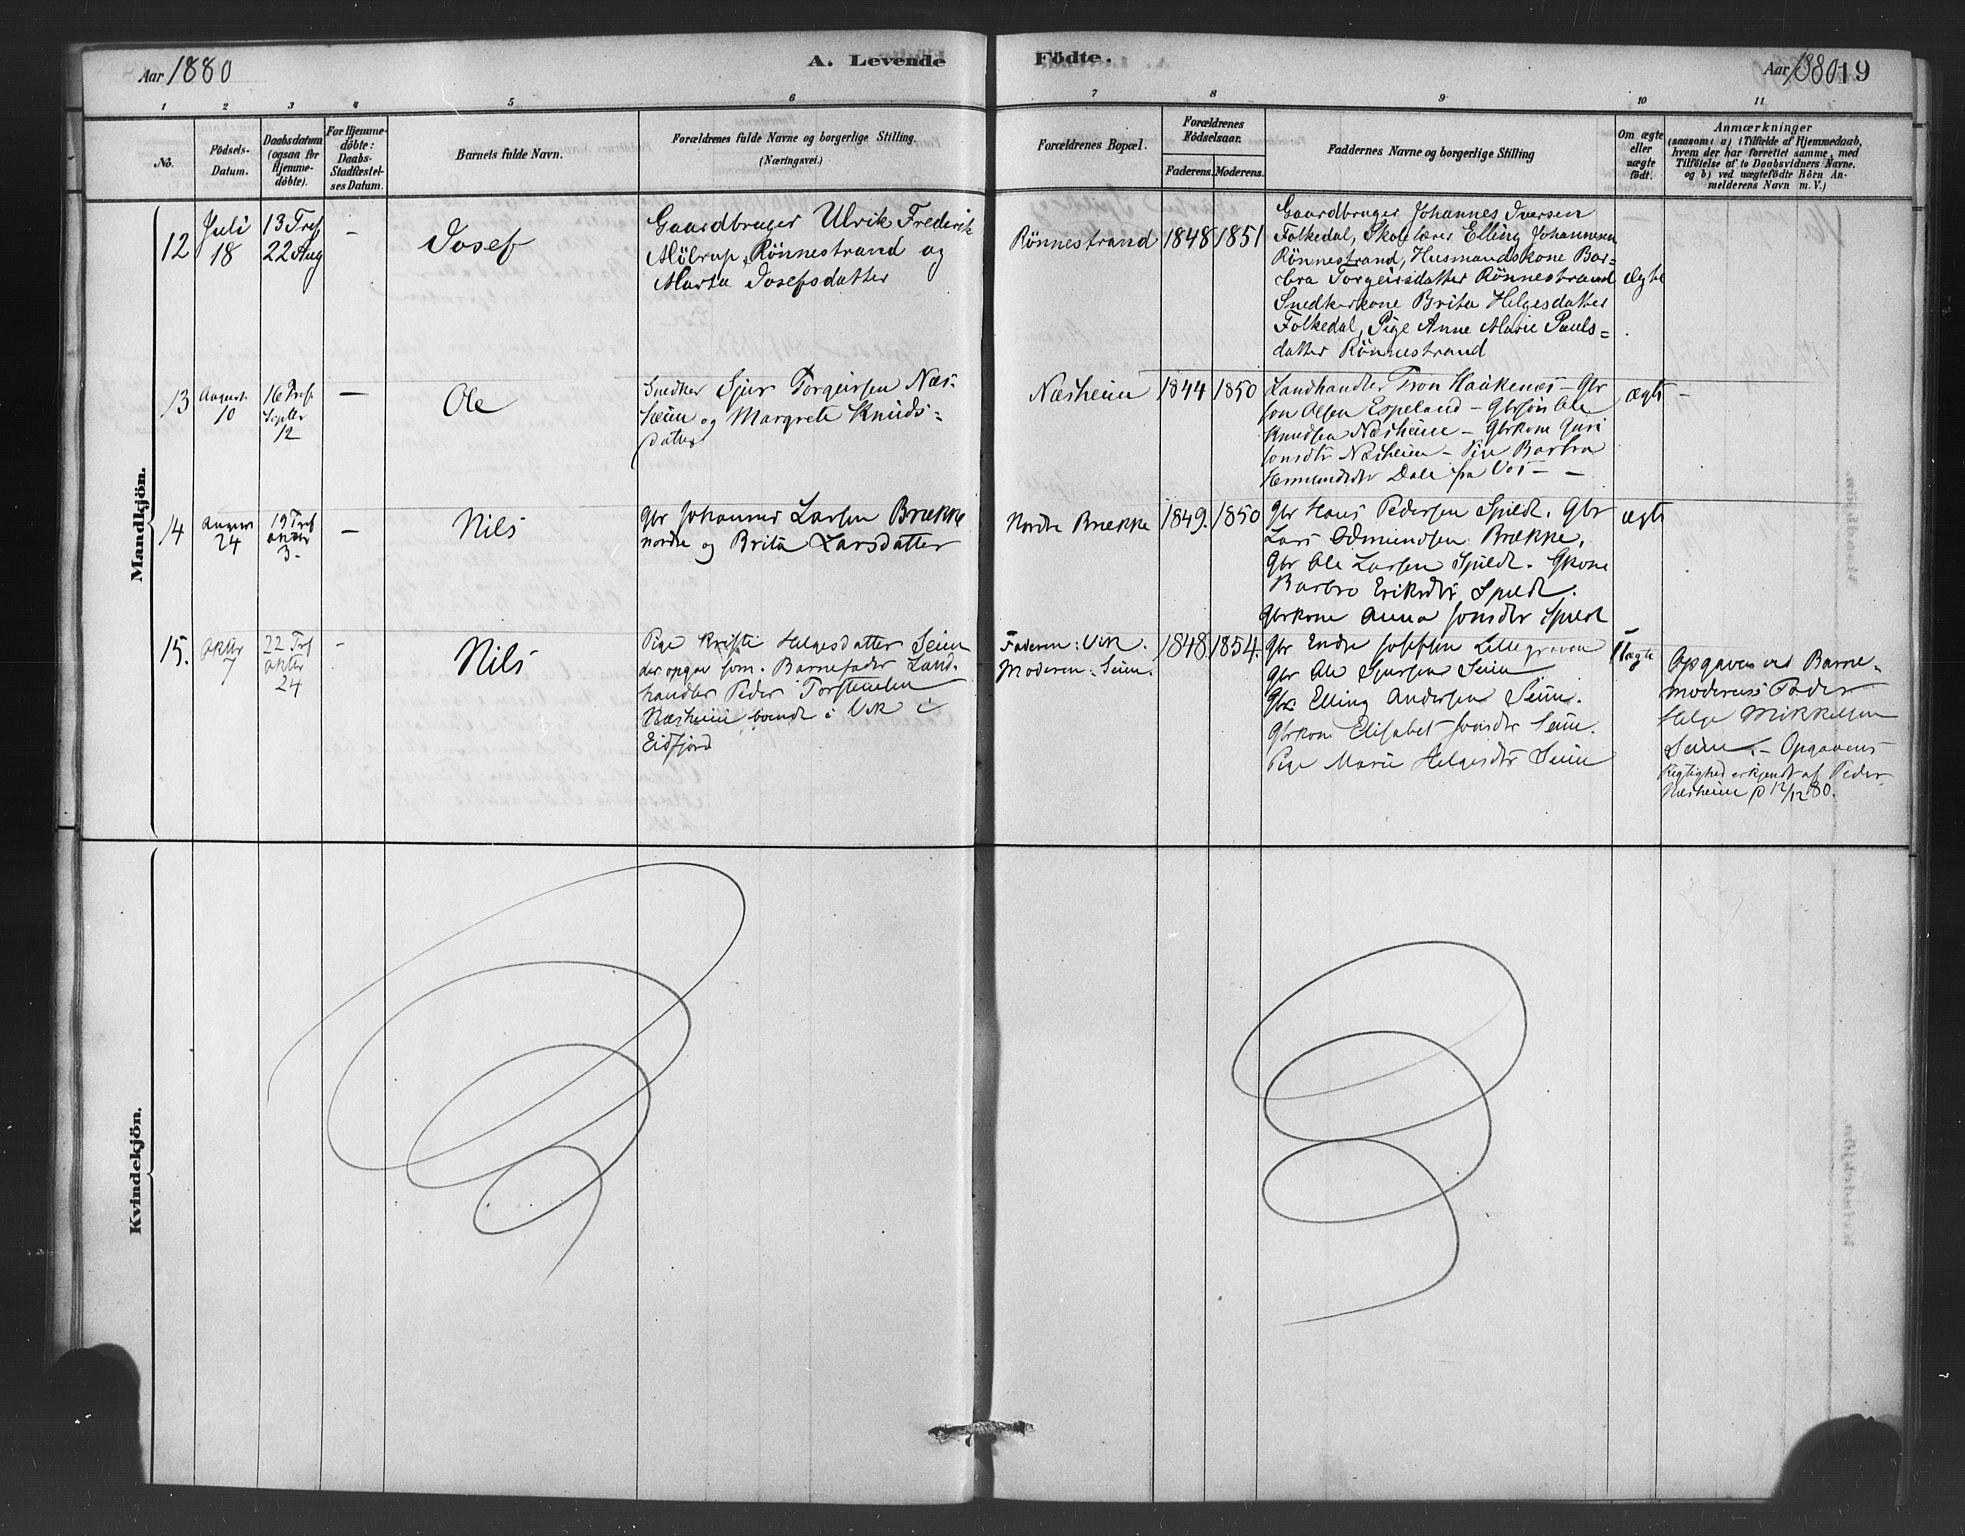 Aar 1880
A. Levende
Födte.
Aar 1880 19
1 2 3 4 5 6 7 8 9 10 11
No.
Födsels-
Datum.
Daabsdatum
(ogsaa for
Hjemme-
döbte).
For Hjemme-
döbte:
Daabs-
Stadfæstel-
ses Datum.
Barnets fulde Navn.
Forældrenes fulde Navne og borgerlige Stilling.
(Næringsvei.)
Forældrenes Bopæl.
Forældrenes
Födselsaar.
Faderens. Moderens.
Faddernes Navne og borgerlige Stilling
Om ægte
eller
uægte
födt.
Anmærkninger
(saasom: a) i Tilfælde af Hjemmedaab,
hvem der har forrettet samme, med
Tilföielse af to Daabsvidners Navne.
og b) ved uægtefödte Börn An-
melderens Navn m. V.)
Mandkjön.
12
Juli
18
13 Tref
22 Aug
-
Josef
Gaardbruger Ulrik Frederik
Mölrup, Rönnestrand og
Marta Josefsdatter
Rönnestrand
1848 1851
Gaardbruger Johannes Iversen
Folkedal, Skolelærer Elling Johannesen
Rönnestrand, Husmandskone Bar-
bra Torgeirsdatter Rönnestrand
Snedkerkone Brita Helgesdatter
Folkedal, Pige Anne Marie Pauls-
datter Rönnestrand
Ægte
13
August
10
16 Tref.
Septbr
12
-
Ole
Snedker Sjur Torgeirsen Næs-
heim og Margrete Knuds-
datter
Næsheim
1844 1850
Landhandler Tron Haukenæs - Gbr
Jon Olsen Espeland - Gbrsön Ole
Knudsen Næsheim - Gbrkone Guri
Jonsdtr Næsheim - Pige Barbra
Dale fra Vos - -
ægte
-
14
August
24
19 Tref
oktbr
3.
-
Nils
Gbr Johannes Larsen Brække
nordre og Brita Larsdatter
Nordre Brække
1849. 1850
Gbr Hans Pedersen Spilde. Gbr
Lars Odmundsen Brække,
Gbr Ole Larsen Spilde. Gkone
Barbro Eriksdtr Spilde.
Gbrkone Anna Jonsdtr Spilde
ægte
15.
Oktbr
7
22 Tref
oktbr
24
-
Nils
Pige Kristi Helgesdatter Seim
der opgav som Barnefader Land-
handler Peder Torsteinsen
Næsheim boende i Vik i
Eidfjord
Faderen: Vik.
Moderen: Seim.
1848. 1854.
Gbr Endre Josefsen Lillegraven
Gbr Ole Sjursen Seim
Gbr. Elling Andersen Seim.
Gbrkone Elisabet Jonsdtr Seim.
Pige Marie Helgesdtr Seim
Uægte
Opgaven ved Barne-
moderens Fader
Helge Mikkelsen
Seim. - Opgavens
Rigtighed erkjendt af Peder
Næsheim p 12/12 80.
Kvindekjön.